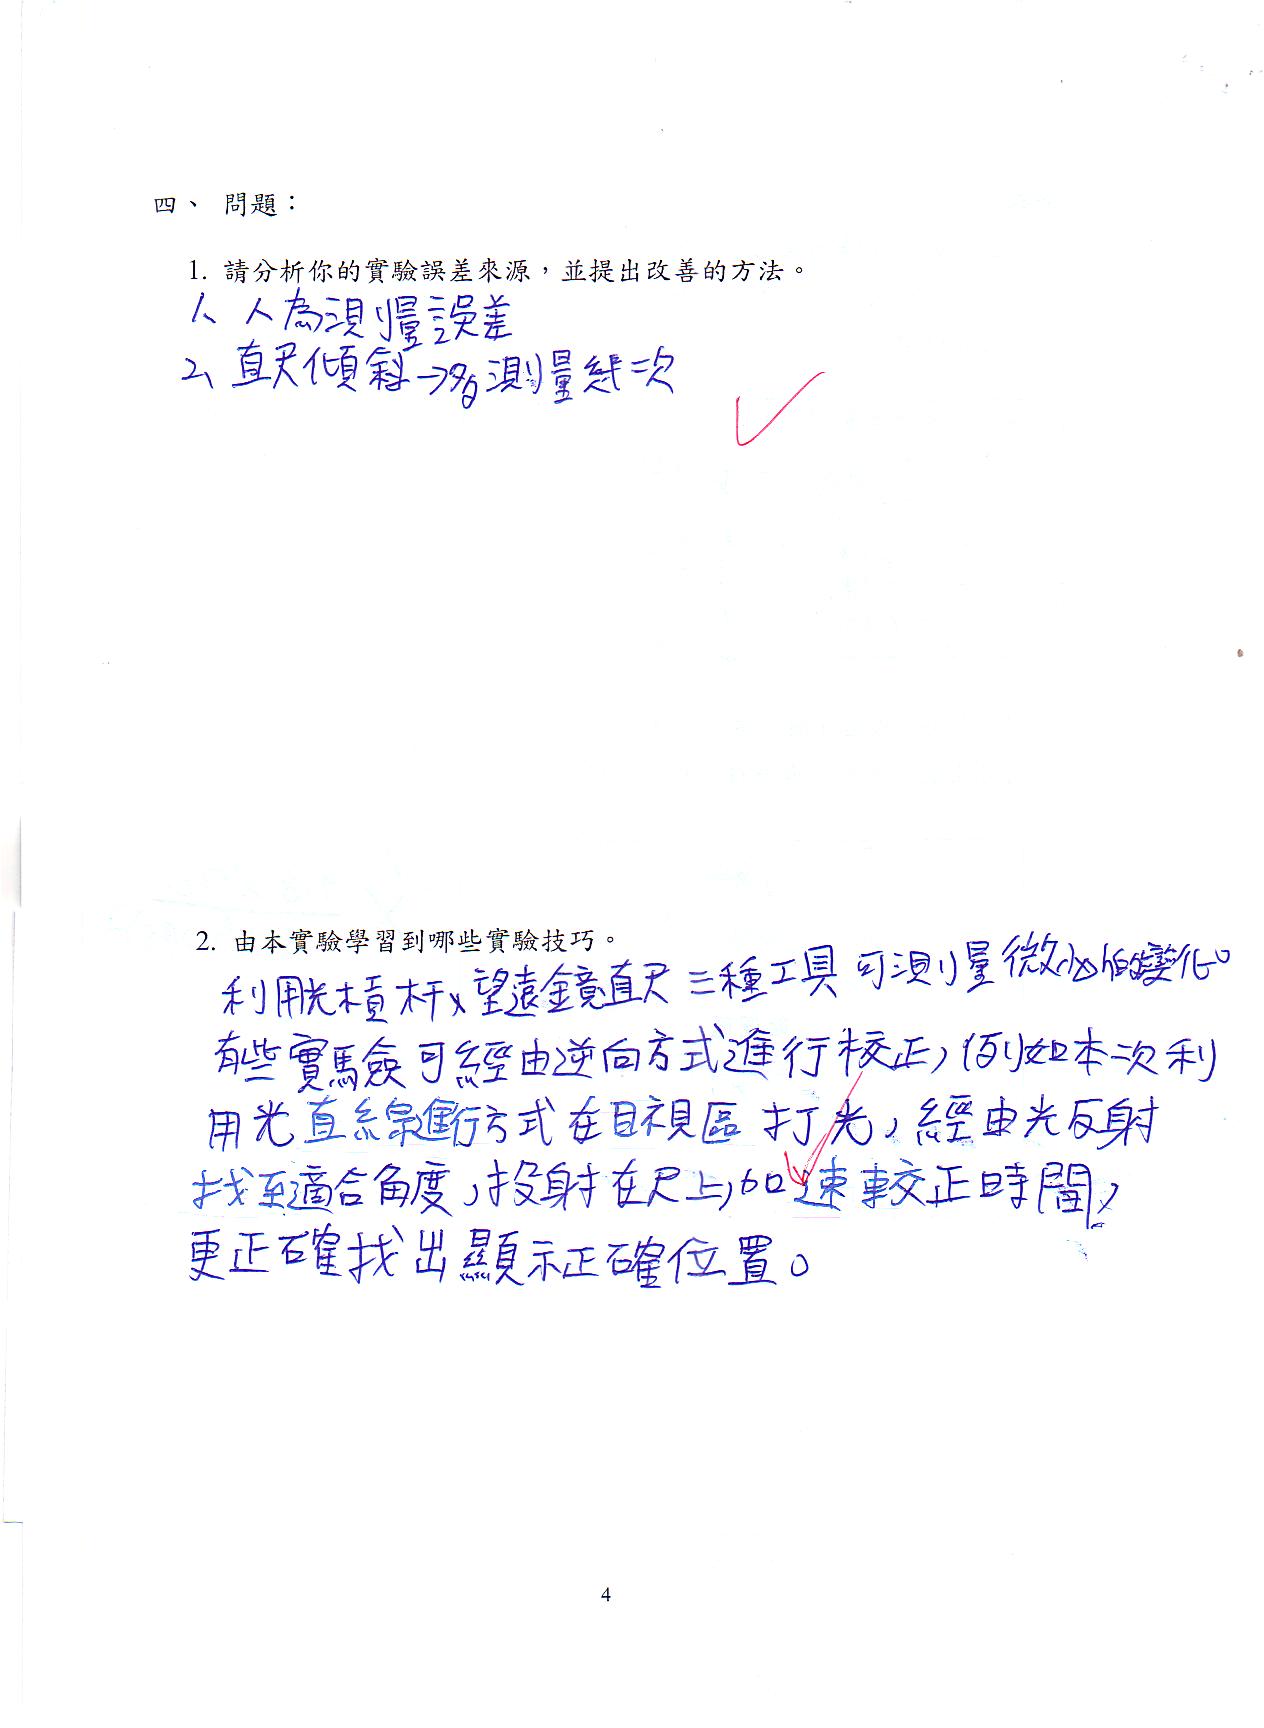 四、 問題：
1. 請分析你的實驗誤差來源，並提出改善的方法。
1、人為測量誤差
2、直尺傾斜→多測量幾次
2. 由本實驗學習到哪些實驗技巧。
利用光槓杆、望遠鏡直尺三種工具可測量微小的變化。
有些實驗可經由逆向方式進行校正，例如本次利
用光直線進行方式在目視區打光，經由光反射
找至適合角度，投射在尺上，加速較正時間，
更正確找出顯示正確位置。
4